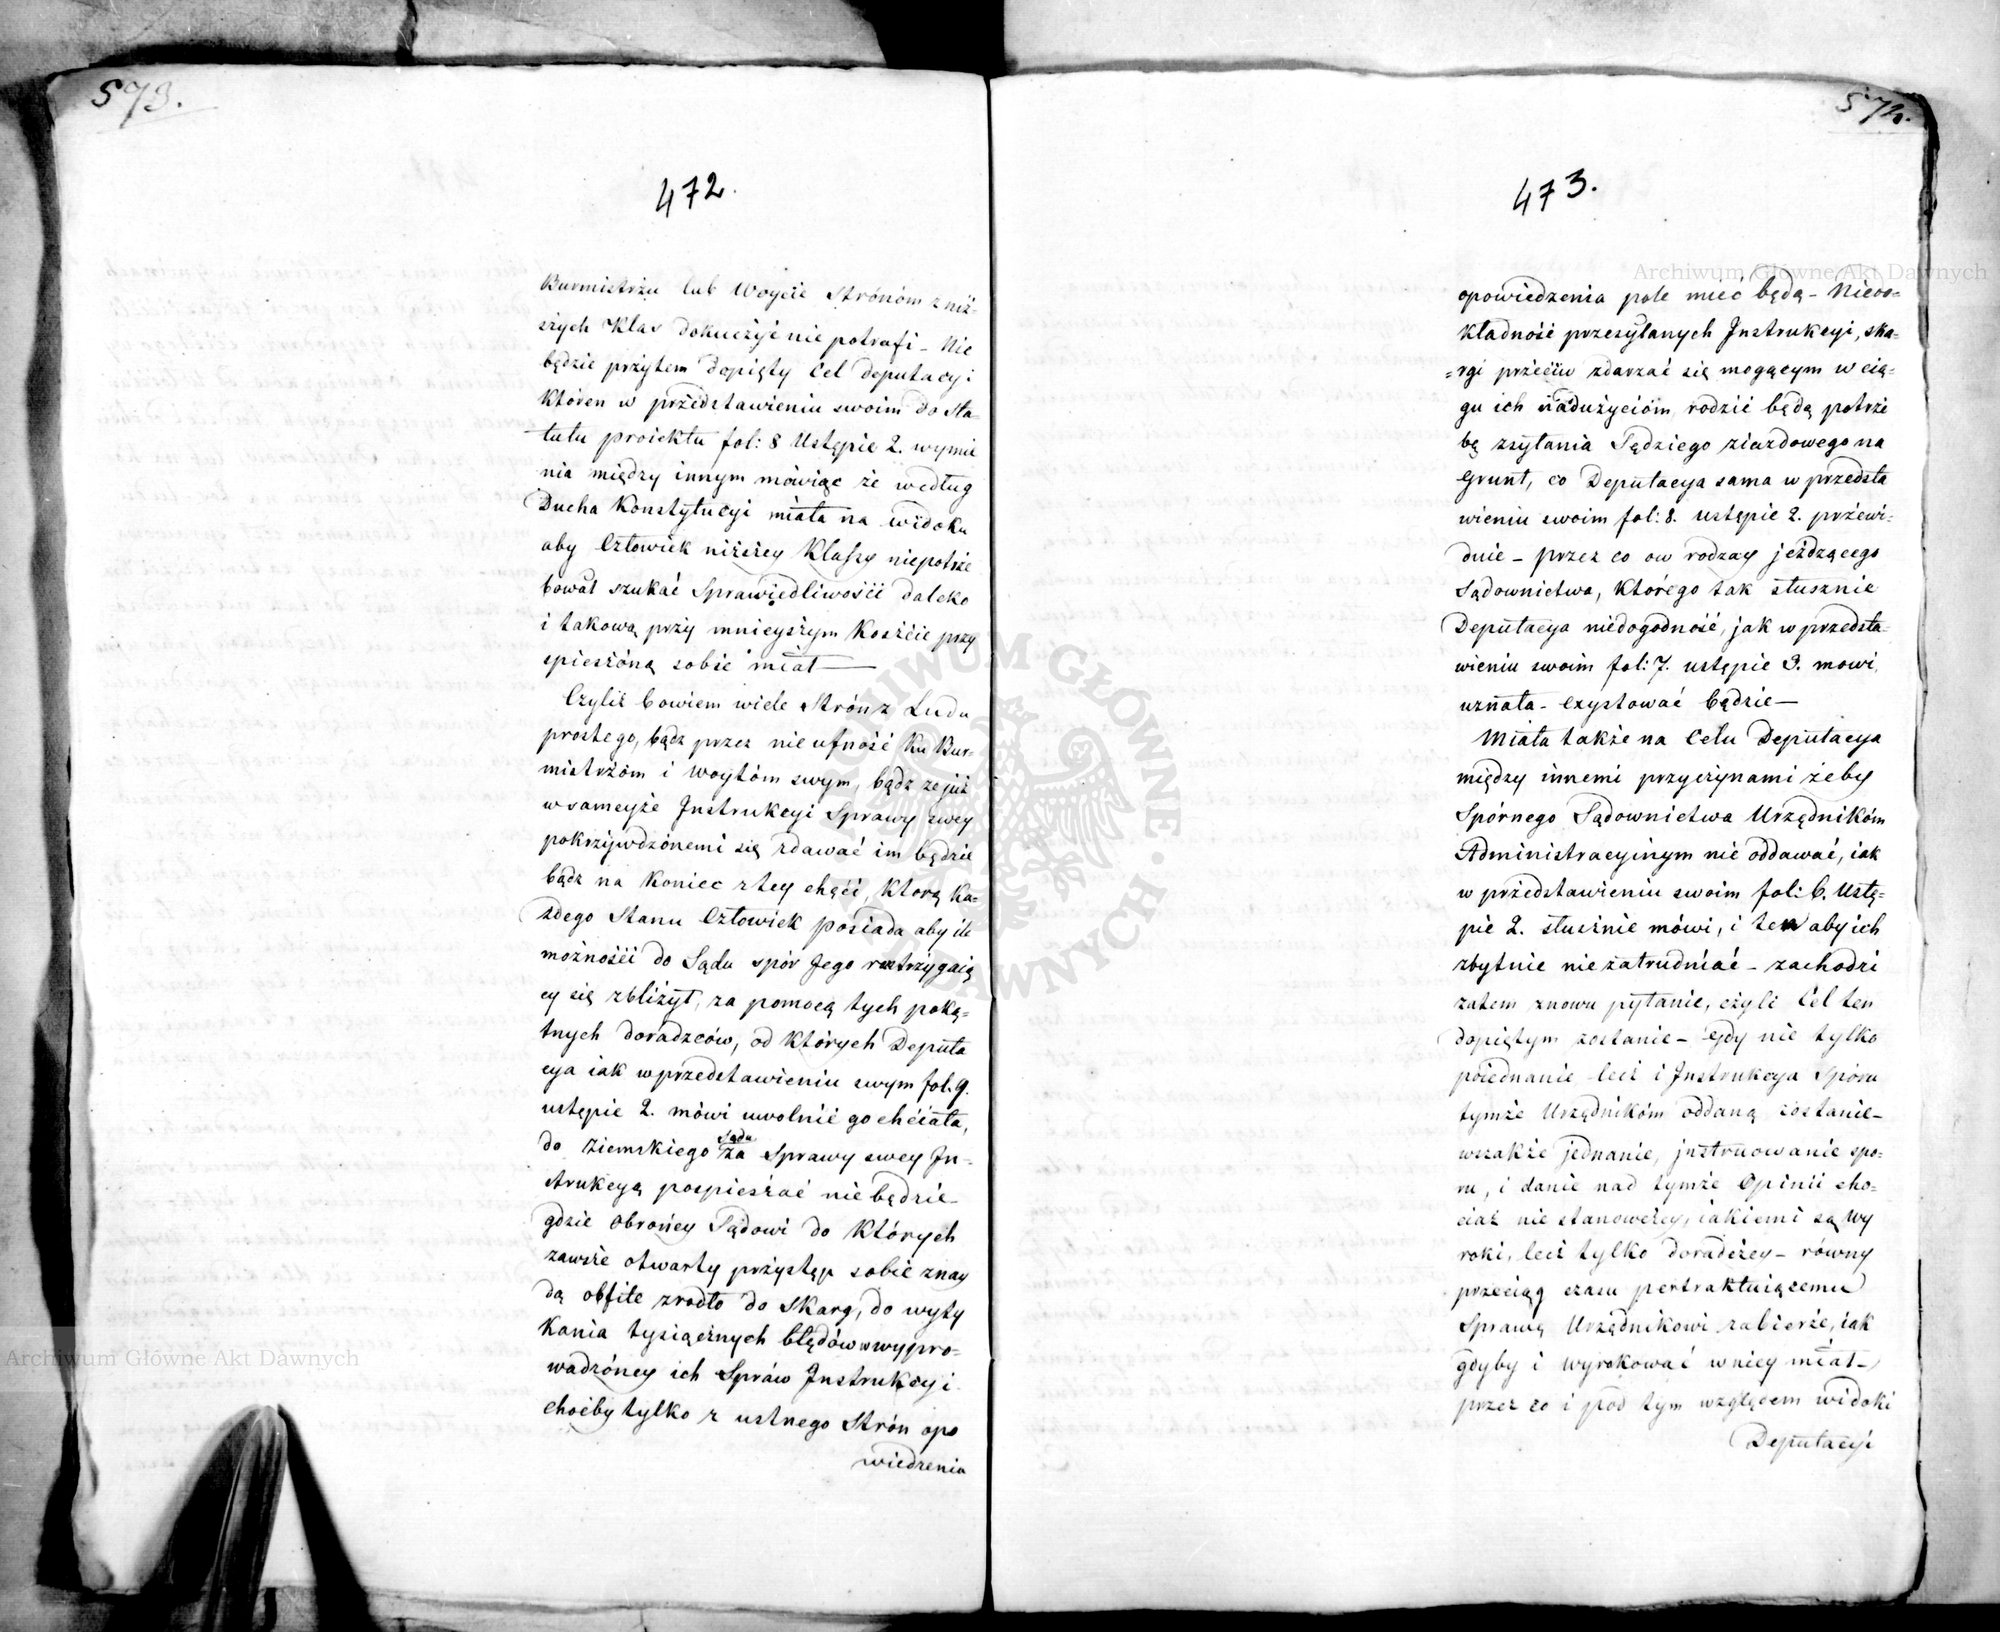 573.
472.
Burmistrzu lub Woycie Strónóm z niż-
szych Klas dokuczyć nie potrafi – Nie
będzie przytem dopięty Cel deputacyi
Któren w przedstawieniu swoim do Sta-
tutu proiektu fol: 8 Ustępie 2. wymie
nia między innym mówiąc że według
Ducha Konstytucyi miała na widoku
aby Człowiek niższey Klassy niepotrze
bował szukać Sprawiedliwości daleko
i takową przy mnieyszym Koszcie przy
spieszóną sobie miał —
Czyliż bowiem wiele Strón z Ludu
prostego, bądz przez nieufność Ku Bur-
mistrzóm i Woytóm swym, bądz ze już
w sameyże Instrukcyi Sprawy swey
pokrzywdzónemi się zdawać im będzie
bądz na Koniec z tey chęci, Ktorą Ka-
żdego Stanu Człowiek posiada aby ile
możności do Sądu spór Jego roztrzygaią
cy się zbliżył, za pomocą tych poką-
tnych doradzców, od Których Deputa
cya iak w przedstawieniu swym fol. 9.
ustępie 2. mówi uwolnić go chciała,
do Ziemskiego Sądu za Sprawy swey In-
strukcyą pospieszać nie będzie –
gdzie Obrońcy Sądowi do Których
zawsze otwarty przystęp sobie znay
dą obfite zrodło do Skarg, do wyty
Kania tysiącznych błędów w wypro-
wadzóney ich Spraw Instrukcyi
choćby tylko z ustnego Strón opo
wiedzenia
574.
473.
opowiedzenia pole mieć będą – Niedo-
kładność przesyłanych Instrukcyi, ska-
rgi przeciw zdarzać się mogącym w cią-
gu ich nadużycióm rodzić będą potrze
bę zsyłania Sędziego ziazdowego na
Grunt, co Deputacya sama w przedsta
wieniu swoim fol: 8. ustępie 2. przewi-
duie – przez co ow rodzay jeżdzącego
Sądownictwa, Którego tak słusznie
Deputacya niedogodność, jak w przedsta-
wieniu swoim fol: 7. ustępie 3. mowi,
uznała – Exystować będzie —
Miała także na Celu Deputacya
między innemi przyczynami żeby
Spórnego Sądownictwa Urzędnikóm
Administracyinym nie oddawać, iak
w przedstawieniu swoim fol: 6. Ustę-
pie 2. słusznie mówi, i tem aby ich
zbytnie nie zatrudniać – zachodzi
zatem znowu pytanie, czyli Cel ten
dopiętym zostanie – Gdy nie tylko
poiednanie lecz i Instrukcya Sporu
tymże Urzędnikóm oddaną zostanie –
wszakże jednanie, instruowanie spo-
ru, i danie nad tymże Opinii cho-
ciaż nie stanowczey, iakiemi są wy
roki, lecz tylko doradczey – równy
przeciąg czasu pertraktuiącemu
Sprawę Urzędnikowi zabierze, iak
gdyby i wyrokować w niey miał –
przez co i pod tym względem widoki
Deputacyi
Archiwum Główne Akt Dawnych
Archiwum Główne Akt Dawnych
ARCHIWUM GŁÓWNE AKT DAWNYCH